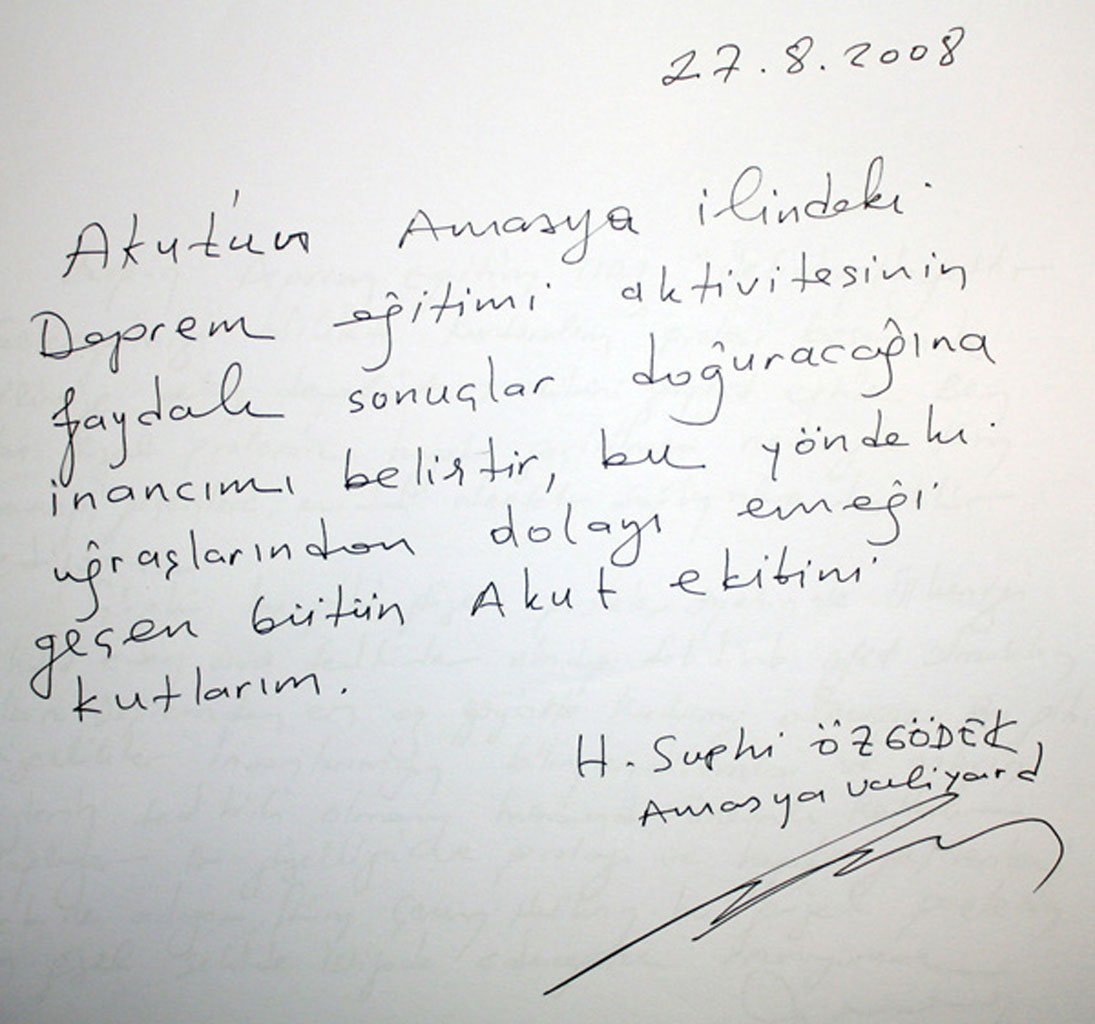 27.8.2008
Akut'un Amasya ilindeki
Deprem eğitimi aktivitesinin
faydalı sonuçlar doğuracağına
inancımı belirtir, bu yöndeki
uğraşlarından dolayı emeği
geçen bütün Akut ekibini
kutlarım.
H. Suphi ÖZGÖDEK
Amasya valiyard